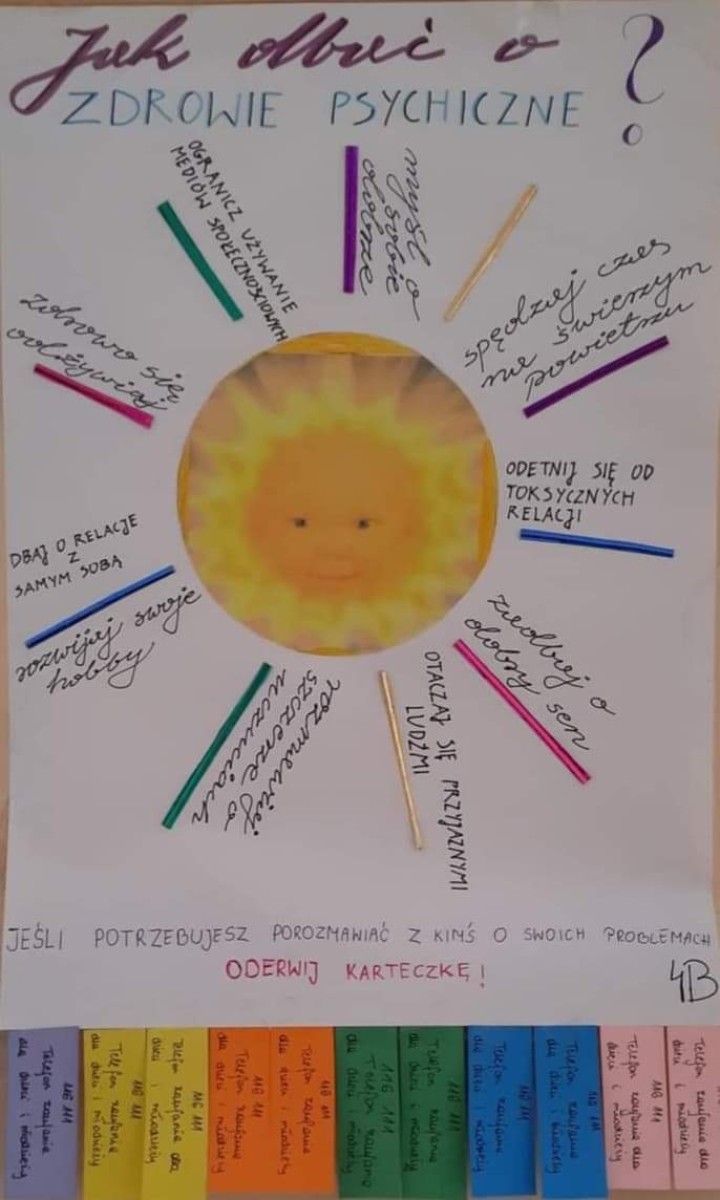 Jak dbać o
ZDROWIE PSYCHICZNE ?
OGRANICZ UŻYWANIE
MEDIÓW SPOŁECZNOŚCIOWYCH
myśl o
sobie
dobrze
spędzaj czas
na świeżym
powietrzu
zdrowo się
odżywiaj
ODETNIJ SIĘ OD
TOKSYCZNYCH
RELACJI
DBAJ O RELACJE
Z
SAMYM SOBĄ
zadbaj o
dobry sen
rozwijaj swoje
hobby
rozmawiaj
szczerze o
uczuciach
OTACZAJ SIĘ PRZYJAZNYMI
LUDŹMI
JEŚLI POTRZEBUJESZ POROZMAWIAĆ Z KIMŚ O SWOICH PROBLEMACH
ODERWIJ KARTECZKĘ!
4B
116 111
Telefon zaufania
dla dzieci i młodzieży
116 111
Telefon zaufania
dla dzieci i młodzieży
116 111
Telefon zaufania dla
dzieci i młodzieży
116 111
Telefon zaufania
dla dzieci i młodzieży
116 111
Telefon zaufania
dla dzieci i młodzieży
116 111
Telefon zaufania
dla dzieci i młodzieży
116 111
Telefon zaufania
dla dzieci i młodzieży
116 111
Telefon zaufania
dla dzieci i młodzieży
116 111
Telefon zaufania
dla dzieci i młodzieży
116 111
Telefon zaufania dla
dzieci i młodzieży
116 111
Telefon zaufania dla
dzieci i młodzieży